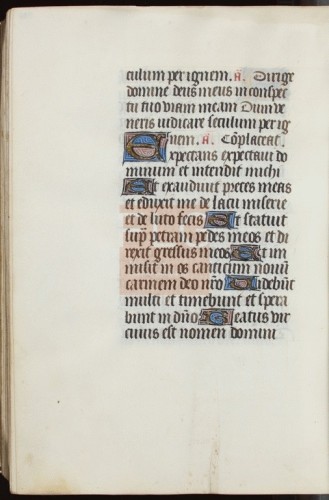 culum per ignem. A. Dirige
domine deus meus in conspec
tu tuo viam meam Dum ve
neris iudicare seculum per ig
nem. A. Cōplaceat
Expectans expectavi do
minum et intendit michi
Et exaudivit preces meas
et eduxit me de lacu miserie
et de luto fecis Et statuit
sup petram pedes meos et di
rexit gressus meos Et im
misit in os canticum novū
carmen deo nr̄o Videbūt
multi et timebunt et spera
bunt in dn̄o Beatus vir
cuius est nomen domini